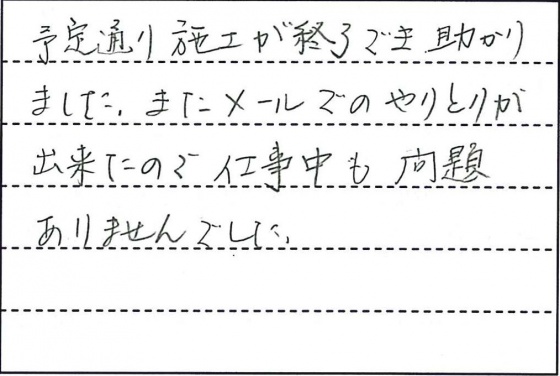 予定通り施工が終了でき助かり
ました。またメールでのやりとりが
出来たので仕事中も問題
ありませんでした。